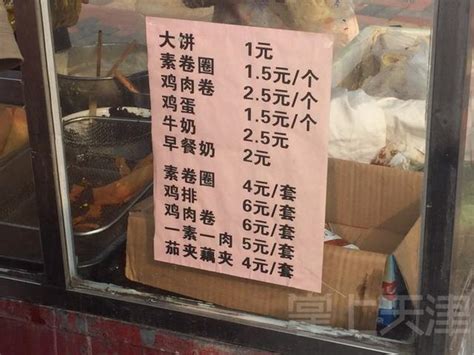 大饼 1元
素卷圈 1.5元/个
鸡肉卷 2.5元/个
鸡蛋 1.5元/个
牛奶 2.5元
早餐奶 2元
素卷圈 4元/套
鸡排 6元/套
鸡肉卷 6元/套
一素一肉 5元/套
茄夹藕夹 4元/套
掌上天津